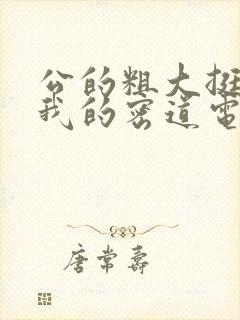 公的粗大挺
我的密道电
唐常寿